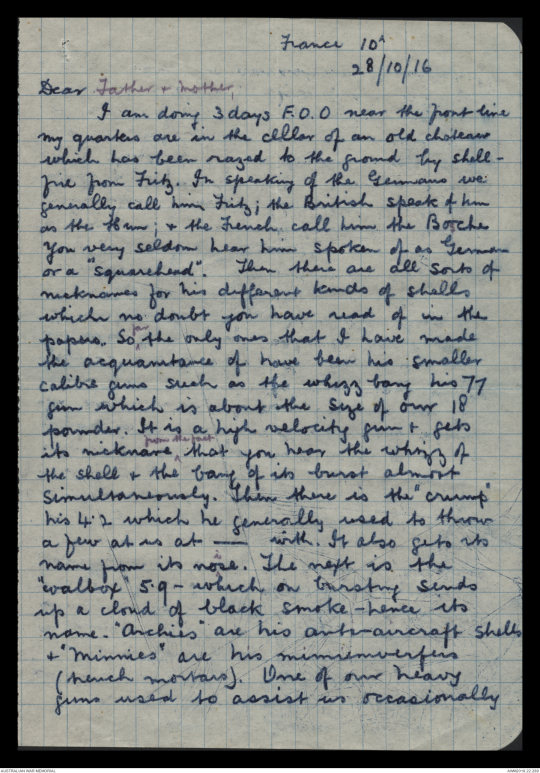 France 10^
28/10/16
Dear Father & Mother,
I am doing 3 days F.O.O near the front line
my quarters are in the cellar of an old chateau
which has been razed to the ground by shell-
fire from Fritz. In speaking of the Germans we
generally call him Fritz; the British speak of him
as the Hun; & the French call him the Bosche
You very seldom hear him spoken of as German
or a "squarehead". Then there are all sorts of
nicknames for his different kinds of shells
which no doubt you have read of in the
papers. So far the only ones that I have made
the acquaintance of have been his smaller
calibre guns such as the whizz bang his 77
gun which is about the size of our 18
pounder. It is a high velocity gun & gets
its nickname from the fact that you hear the whizz of
the shell & the bang of its burst almost
simultaneously. Then there is the "crump"
his 4.2 which he generally used to throw
a few at us at — with. It also gets its
name from its noise. The next is the
"coalbox" 5.9 - which on bursting sends
up a cloud of black smoke - hence its
name. "Archies" are his anti-aircraft shells
& "Minnies" are his minnenwerfers
(trench mortars). One of our heavy
guns used to assist us occasionally
AUSTRALIAN WAR MEMORIAL
AWM2016.22.230